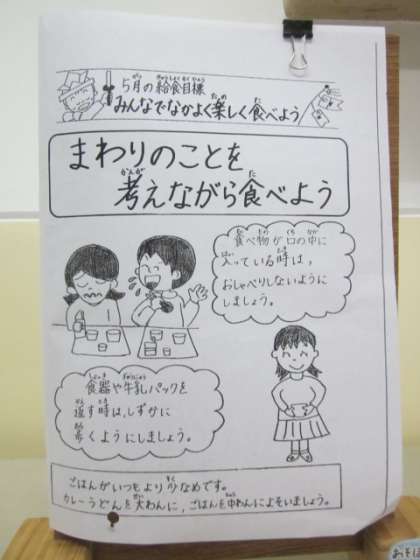 5月の給食目標
みんなでなかよく楽しく食べよう
まわりのことを
考えながら食べよう
食べ物が口の中に
入っている時は,
おしゃべりしないように
しましょう。
食器や牛乳パックを
返す時は、しずかに
おくようにしましょう。
ごはんがいつもより少なめです。
カレーうどんを大わんに,ごはんを中わんによそいましょう。